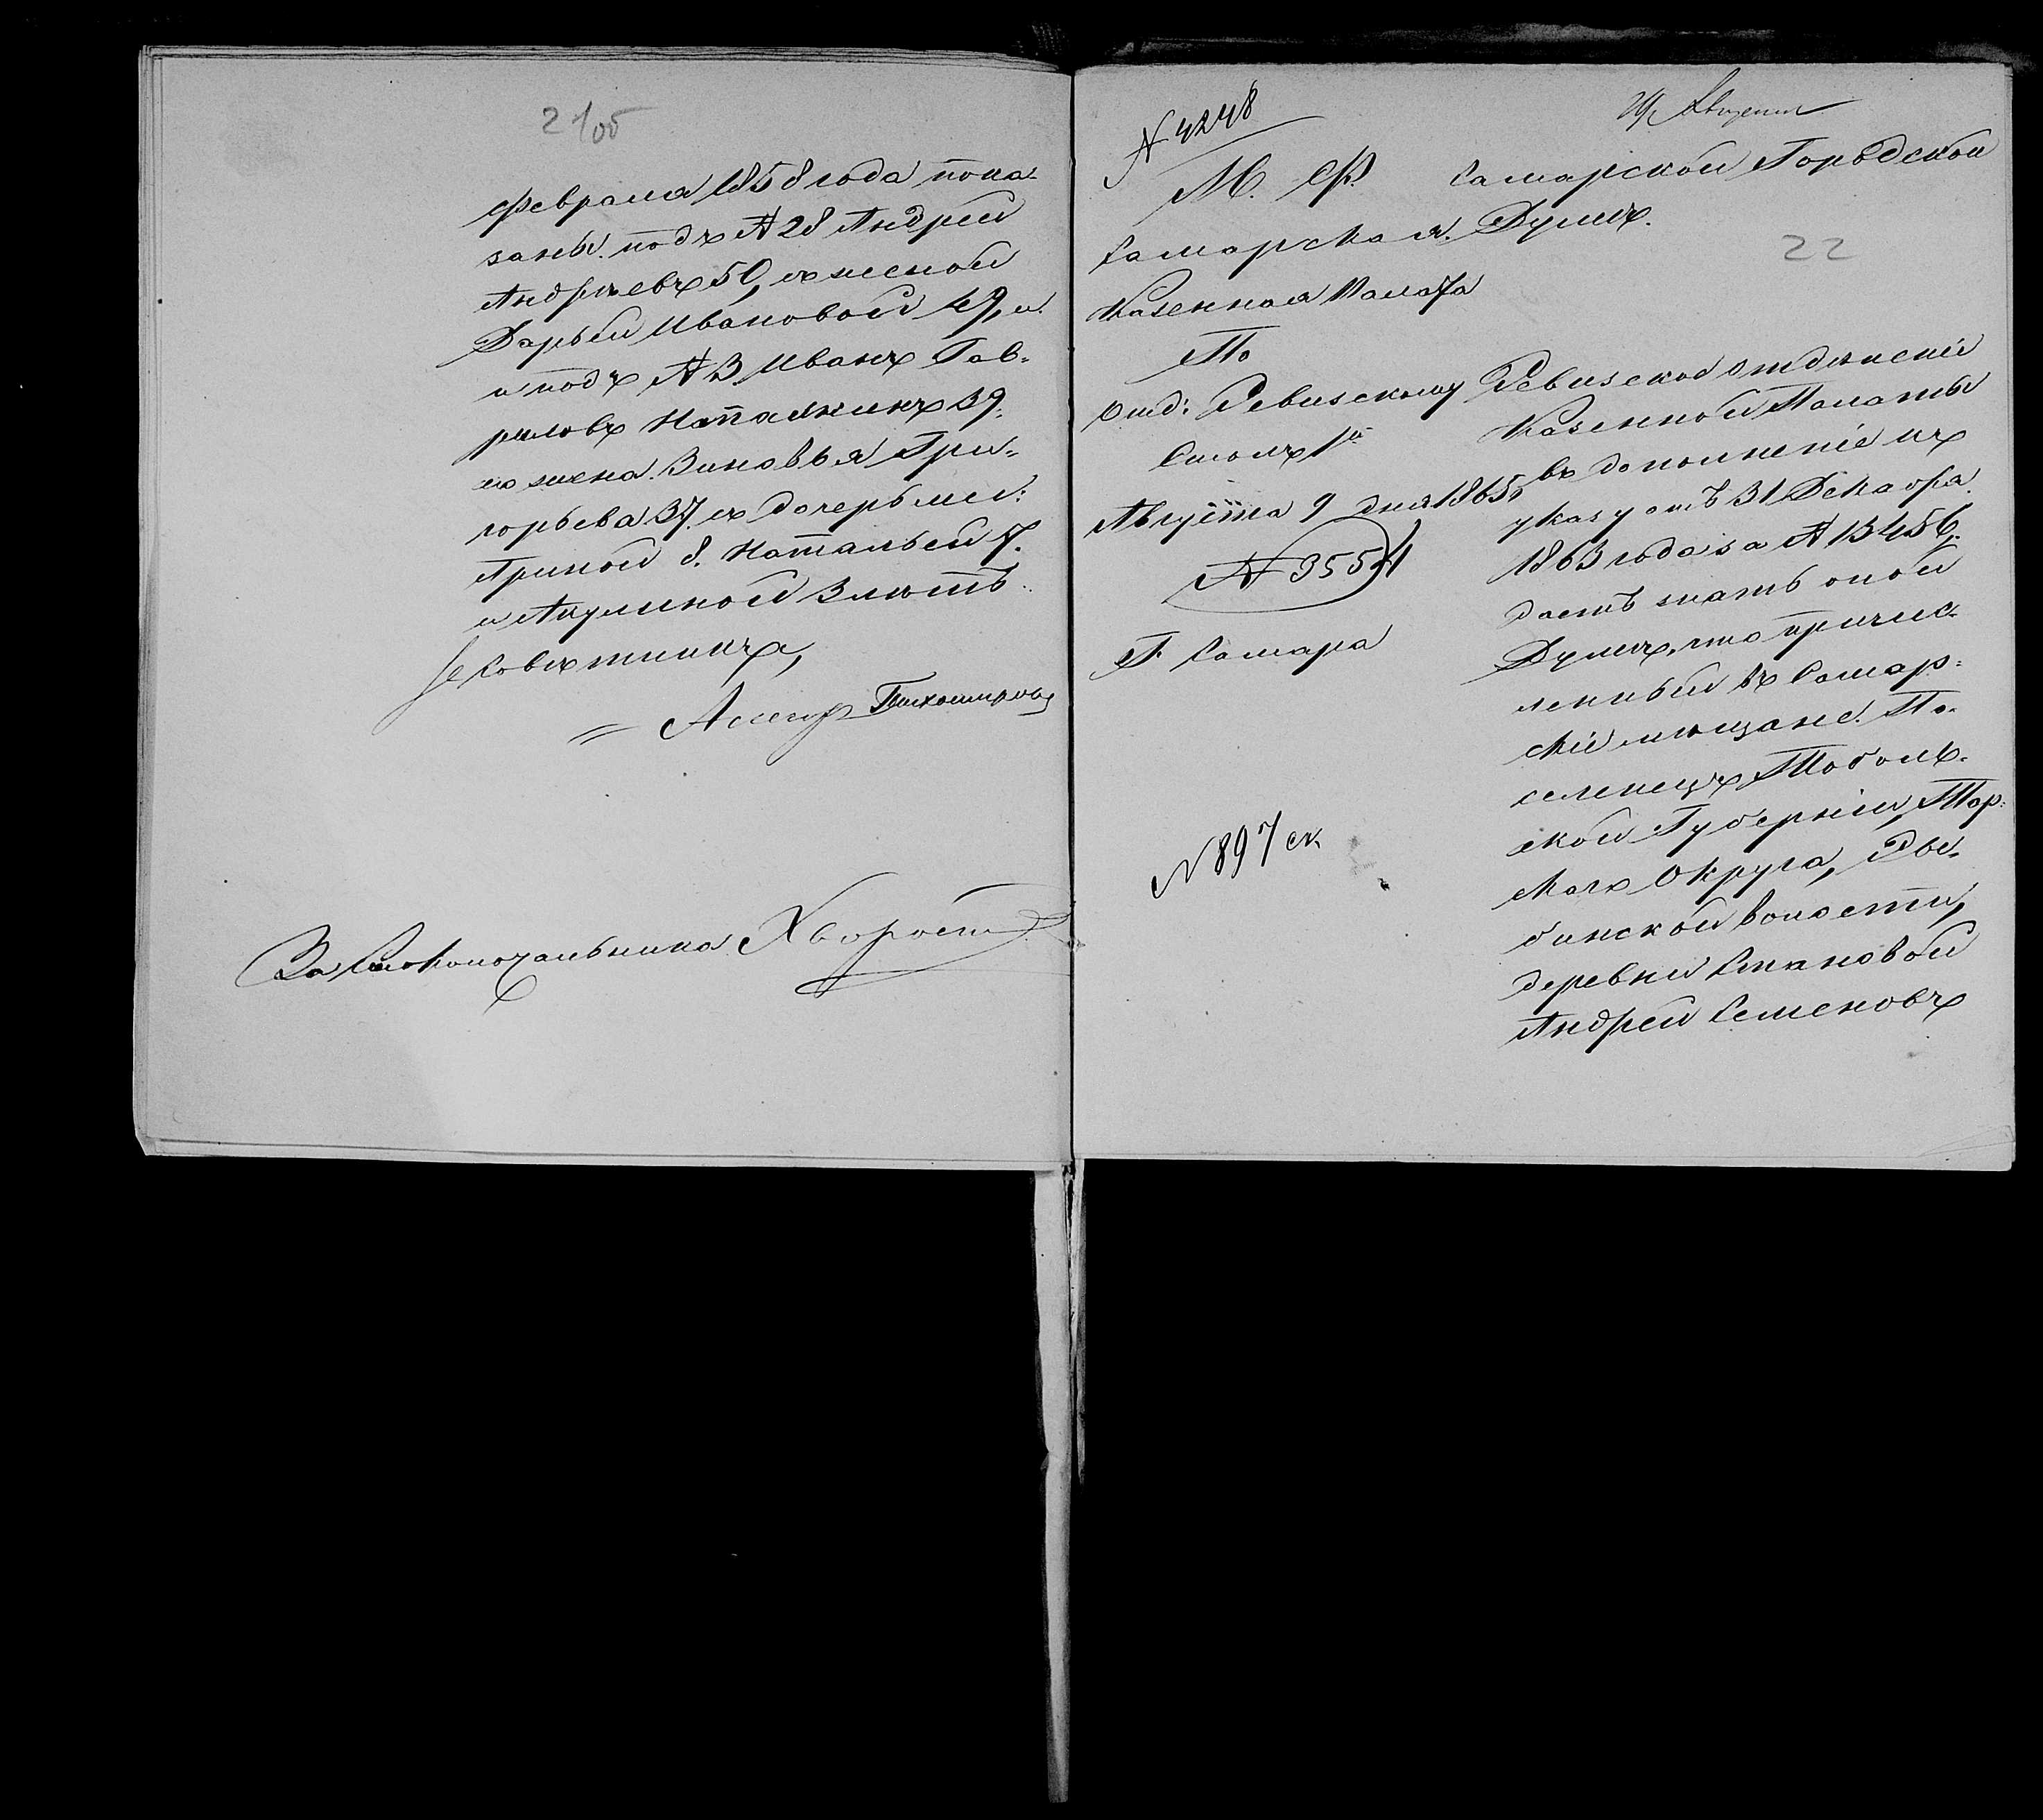 21об
Февраля 1858 года пока-
заны подъ № 28 Андрей
Андрѣевъ 50, съ женой
Дарьей Ивановой 49, и
и подъ № 3 Иванъ Гав-
риловъ 39.
его жена Зиновья Гри-
горьева 37. съ дочерьми:
Ариной 8. Натальей 7.
и Акулиной 3 лѣтъ.
Совѣтникъ,
Тихомировъ
За Столоначальника Хворост
№ 4248
М. Ф.
Самарская
Казенная Палата
По
Отд: Ревизскому
Столъ 1й
Августа 9 дня 1865
№ 35541
Г. Самара
№ 897 ск
Самарской Городской
Думѣ.
22
Ревизское отдѣленіе
Казенной Палаты
въ дополненіе къ
указу отъ 31 Декабря
1863 года за № 13456,
даетъ знать оной
Думѣ, что причис-
ленный въ Самар-
скіе мѣщане По-
селенецъ Тоболь-
ской Губерніи, Тар-
скаго Округа, Ры-
бинской волости,
деревни Становой
Андрей Семеновъ